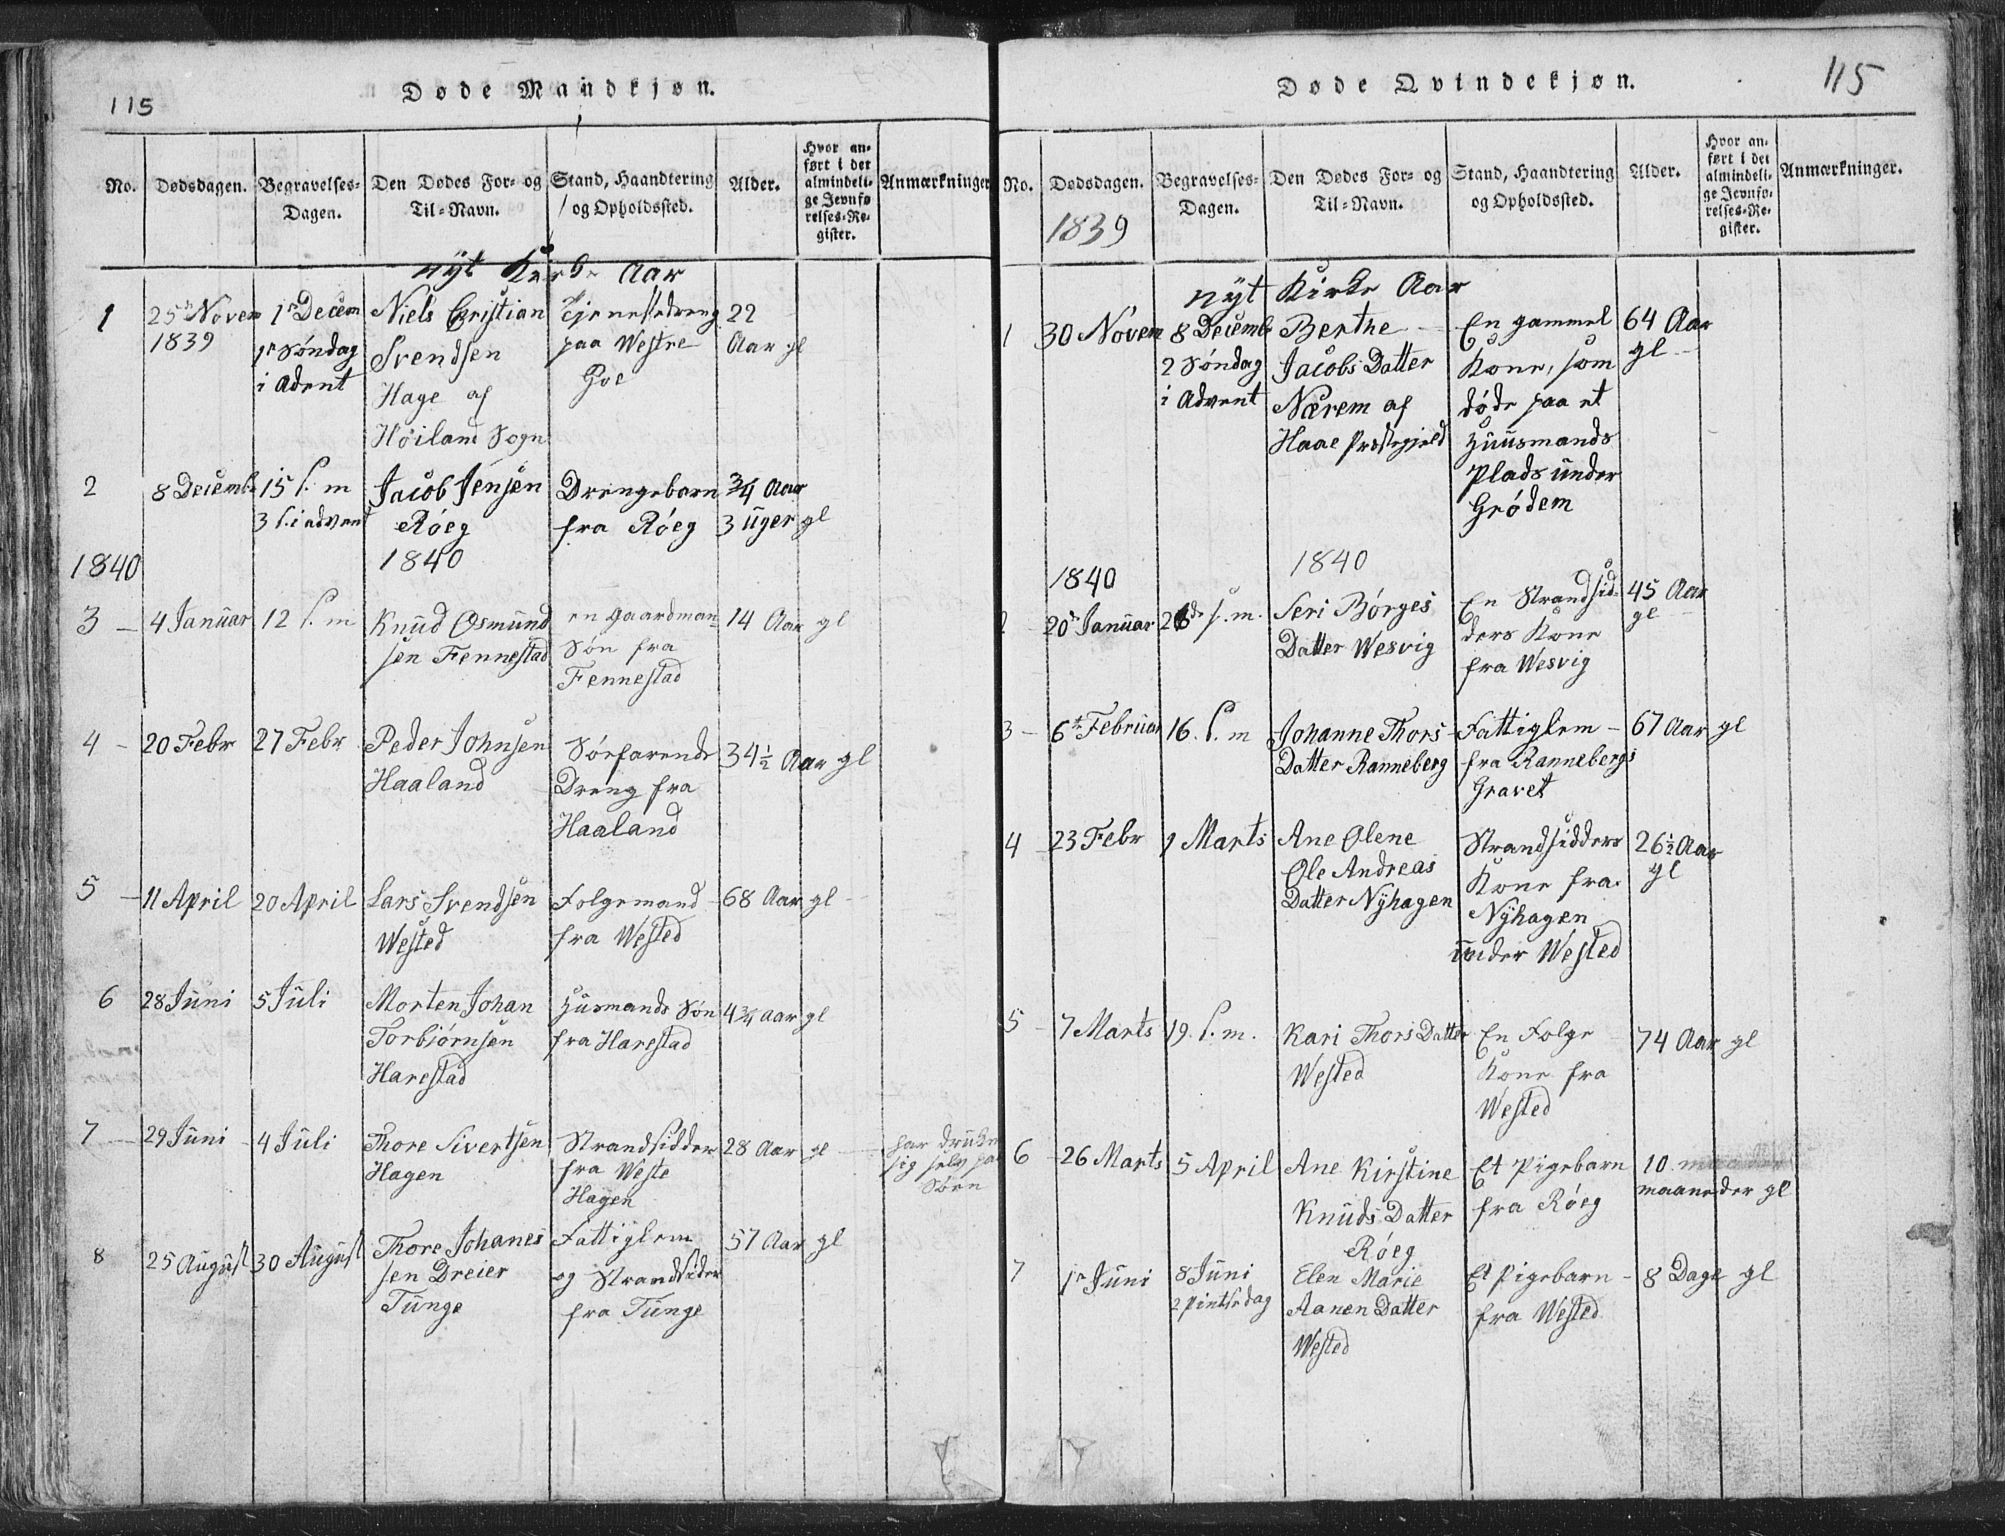 115
Døde Mandkjøn.
No.
Dødsdagen.
Begravelses-
Dagen.
Den Dødes For- og
Til-Navn.
Stand, Haandtering
og Opholdssted.
Alder.
Hvor an-
ført i det
almindeli-
ge Jevnfø-
relses-Re-
gister.
Anmærkninger
nyt Kirke Aar
1
25de Novem
1839
1r Decem
1r Søndag
i Advent
Niels Cristian
Svendsen
Hage af
Høiland Sogn
Tjenestedreng
paa Westre
Goe
22
Aar gl
2
8 Decemb
15 s. m
3 s. i advent
Jacob Jensen
Røeg
Drengebarn
fra Røeg
3/4 Aar
3 uger gl
1840
1840
3 –
4 Januar
12 s. m
Knud Osmund
sen Fennestad
en Gaardman
Søn fra
Fennestad
14 Aar gl
4 –
20 Febr
27 Febr
Peder Johnsen
Haaland
Sørfarende
Dreng fra
Haaland
34½ Aar gl
5 –
11 April
20 April
Lars Svendsen
Wested
Folgemand
fra Wested
68 Aar gl
6
28 Juni
5 Juli
Morten Johan
Torbiørnsen
Harestad
Husmands Søn
fra Harestad
4¾ aar gl
7
29 Juni
4 Juli
Thore Sivertsen
Hagen
Strandsidder
fra Weste
Hagen
28 Aar gl
har drukn
sig selv paa
Søen
8
25 August
30 August
Thore Johanes
sen Dreier
Tunge
Fattiglem
og Strandsider
fra Tunge
57 Aar gl
115
Døde Qvindekjøn.
No.
Dødsdagen.
1839
Begravelses-
Dagen.
Den Dødes For- og
Til-Navn.
Stand, Haandtering
og Opholdssted.
Alder.
Hvor an-
ført i det
almindeli-
ge Jevnfø-
relses-Re-
gister.
Anmærkninger.
nyt Kirke Aar
1
30 Novem
8 Decemb
2 Søndag
i Advent
Berthe
Jacobs Datter
Nærem af
Haae Præstegjeld
En gammel
Kone, som
døde paa et
Huusmands
Plads under
Grødem
64 Aar
gl
1840
1840
2
20de Januar
26de s. m.
Seri Børges
Datter Wesvig
En Strandsid-
ders Kone
fra Wesvig
45 Aar
gl
3 –
6te Februar
16. s. m
Johanne Thors
Datter Ranneberg
Fattiglem –
fra Rannebergs
Gravet
67 Aar gl
4
23 Febr
1 Marts
Ane Olene
Ole Andreas
Datter Nyhagen
Strandsidders
Kone fra
Nyhagen
under Wested
26½ Aar
gl
5
7 Marts
19. s. m.
Kari Thors Datter
Wested
En Folge
Kone fra
Wested
74 Aar gl
6
26 Marts
5 April
Ane Kirstine
Knuds Datter
Røeg
Et Pigebarn
fra Røeg
10
maaneder gl
7
1r Juni
8 Juni
2 Pintsedag
Elen Marie
Aanen Datter
Wested
Et Pigebarn –
fra Wested
8 Dage gl